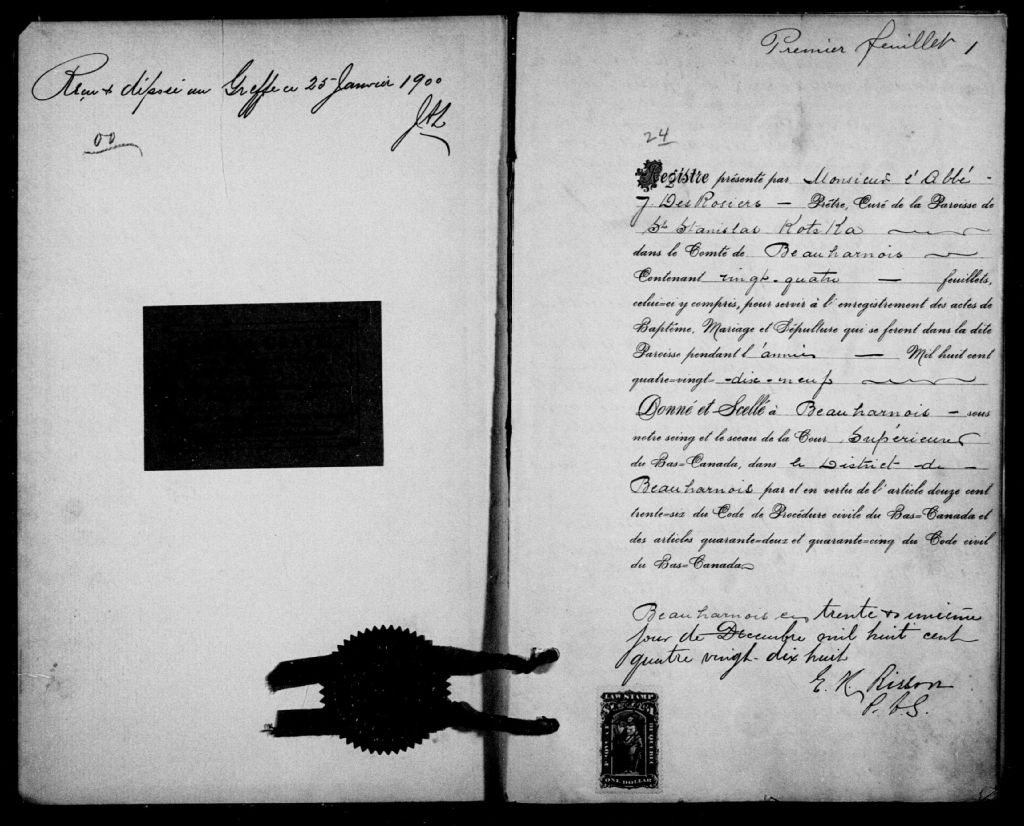 Reçu & déposé au Greffe ce 25 Janvier 1900
00
Premier feuillet 1
24
Registre présenté par Monsieur l'Abbé -
J. DesRosiers — Prêtre, Curé de la Paroisse de
St Stanislas Kotska
dans le Comté de Beauharnois
Contenant vingt-quatre — feuillets,
celui=ci y compris, pour servir à l'enregistrement des actes de
Baptême, Mariage et Sépulture qui se feront dans la dite
Paroisse pendant l'année — Mil huit cent
quatre=vingt= -dix-neuf
Donné et Scellé à Beauharnois — sous
notre seing et le sceau de la Cour Supérieure
du Bas=Canada, dans le District de -
Beauharnois par et en vertu de l'article douze cent
trente=six du Code de Procédure civile du Bas=Canada et
des articles quarante=deux et quarante=cinq du Code civil
du Bas=Canada
Beauharnois ce trente & unième
jour de Décembre mil huit cent
quatre vingt-dix huit
E. H. Bisson
P. C. S.
LAW STAMP
ONE DOLLAR